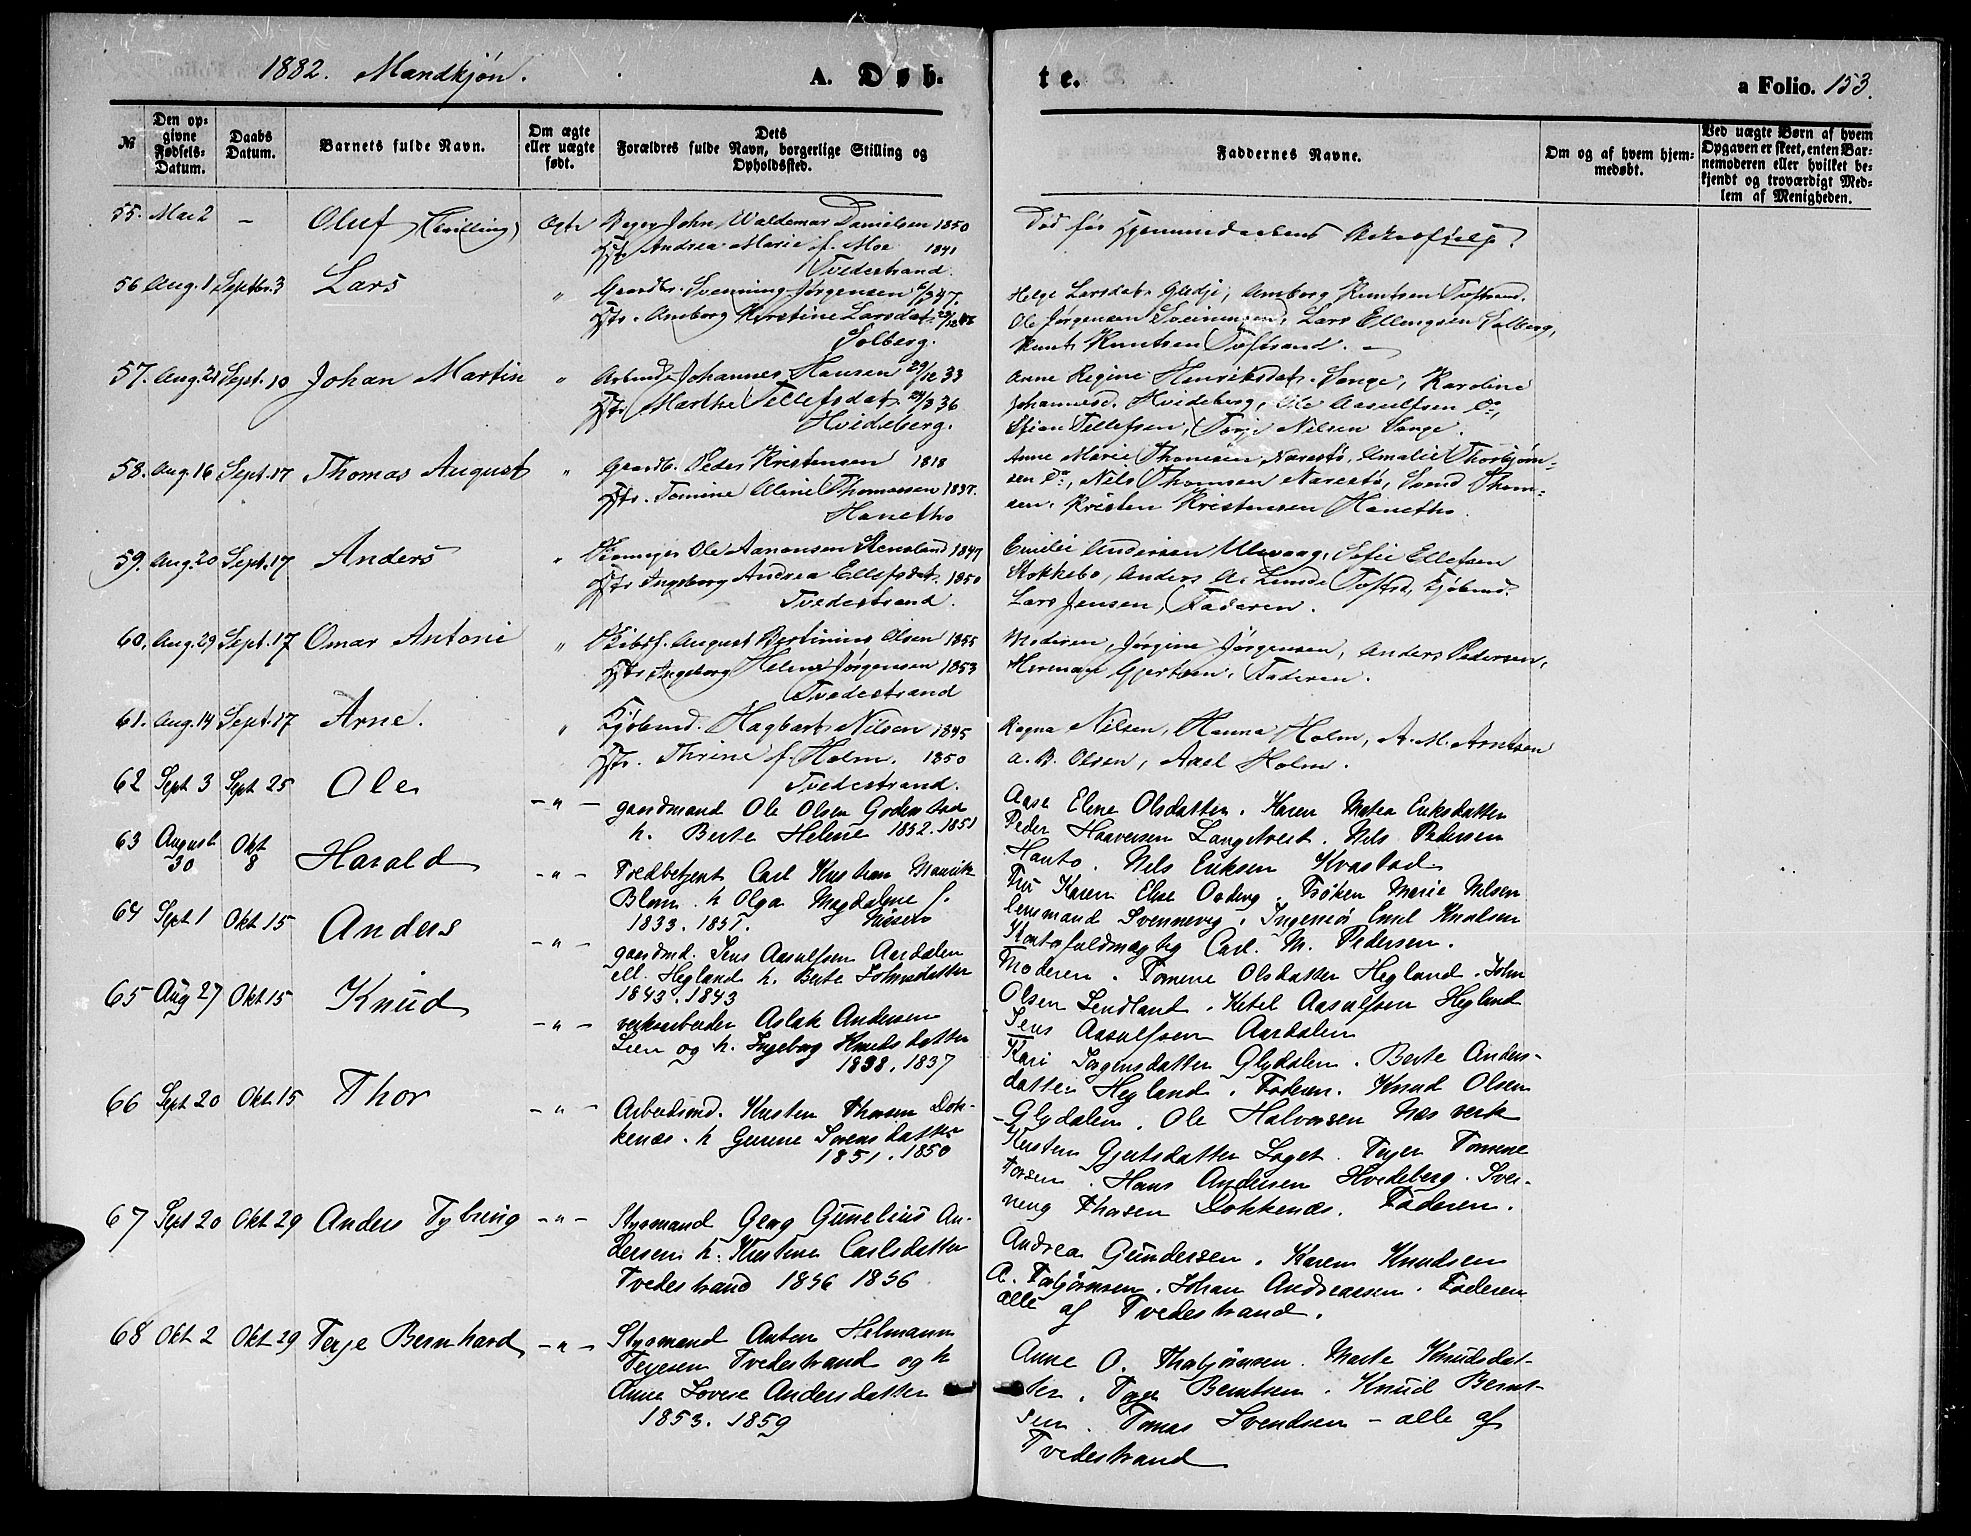 1882. Mandkjøn.
A. Døb-
te.
a Folio. 153.
№
Den op-
givne
Fødsels-
Datum.
Daabs
Datum.
Barnets fulde Navn.
Om ægte
eller uægte
født.
Dets
Forældres fulde Navn, borgerlige Stilling og
Opholdssted.
Faddernes Navne.
Om og af hvem hjem-
medøbt.
Ved uægte Børn af hvem
Opgaven er skeet, enten Bar-
nemoderen eller hvilket be-
kjendt og troværdigt Med-
lem af Menigheden.
55. Mai 2 - Oluf (Tvilling) Ægte Bager John Waldemar Danielsen 1850
Hstr Andrea Marie f. Moe 1841
Tvedestrand.
Død før Hjemmedaabens Bekræftelse.
56 Aug. 1 Septbr. 3 Lars " Gaardbr. Svenning Jørgensen 6/3 47.
Hstr. Amborg Kirstine Larsdat.
Solberg.
Helge Larsdat. Glidje, Amborg Knutsen Toftsand.
Ole Jørgensen Sveinungsen, Lars Ellingsen Solberg,
Knut Knutsen Toftsand. -
57. Aug. 21 Sept. 10 Johan Martin " Arbmd. Johannes Hansen 29/12 33
Hstr Marthe Tellefsdat. 36
Hvideberg.
Anne Regine Henriksdat. Songe, Karoline
Johannesd. Hvideberg, Ole Aasulfsen Do,
Stian Tellefsen, Terje Nilsen Songe.
58. Aug. 16 Sept. 17 Thomas August " Gaardb. Peder Kristensen 1818
Hstr. Tomine Aline Thomassen 1837.
Hanetho
Anne Marie Thomsen Narestø, Amalie Thorbjørn-
sen Do, Nils Thomsen Narestø, Svend Thom-
sen, Kristen Kristensen Hanetho.
59. Aug. 20 Sept. 17 Anders " Ole Aanonsen Stensland 1847
Hstr Ingeborg Andrea Ellefsdat. 1850
Tvedestrand.
Emilie Andersen Ulevaag, Sofie Ellefsen
Stokkebo, Anders A. Lunde Toftsd, Kjøbmd.
Lars Jensen, Faderen.
60. Aug. 29 Sept. 17 Omar Antonie " Skibsf. August Bertinius Olsen 1855
Hstr Ingeborg Helene Jørgensen 1853
Tvedestrand
Moderen, Jørgine Jørgensen, Anders Pedersen,
Herman Gjertsen, Faderen.
61. Aug. 14 Sept. 17 Arne. " Kjøbmd. Hagbart Nilsen 1845
Hstr. Thrine f. Holm. 1850
Tvedestrand.
Ragna Nilsen, Hanna Holm, A. M. Arntsen
A. B. Olsen, Axel Holm.
62 Sept 3 Sept 25 Ole - " - gaardmand Ole Olsen
h. Berte Helene 1852. 1851
Aase Elene Olsdatter. Karen Matea Eriksdatter
Peder Haaversen Langetveit. Nils Pedersen
Hanto. Nils Eriksen Kvastad
63 August
30
Okt
8
Harald - " - Toldbetjent Carl Kristian Maurik
Blom. h Olga Magdalene f.
1833. 1851. Nissen
Fru Karen Elise Omberg. Frøken Marie Nilsen
lensmand Svennevig. Ingeniør Emil Knudsen
Kontorfuldmægtig Carl. M. Pedersen.
64 Sept 1 Okt 15 Anders - " - gaardmd. Jens Aasulfsen Aardalen
ell. Hegland h. Berte Johnsdatter
1843. 1843
Moderen. Tomene Olsdatter Hegland. John
Olsen Lindland. Ketel Aasulfsen Hegland
Jens Aasulfsen Aardalen
65 Aug 27 Okt 15 Knud - " - verksarbeider Aslak Andersen
Lien og h. Ingeborg Knudsdatter
1838. 1837
Kari Jørgensdatter Glydalen. Berte Anders-
datter Hegland. Faderen. Knud Olsen
Glydalen. Ole Halvorsen Næs verk
66 Sept 20 Okt 15 Thor - " - Arbeidsmd. Kristen Thorsen Dok-
kenæs. h Gurine Sørensdatter
1851. 1850
Kirsten Gjertsdatter Laget. Terjer Tomene
Torsen. Hans Andersen Hvideberg. Sven-
neug Thorsen Dokkenæs. Faderen.
67 Sept 20 Okt 29 Anders Tybring - " - Styrmand Georg Gunelius An-
dersen h. Kirstine Carlsdatter
Tvedestrand 1856 1856
Andrea Gundersen. Karen Knudsen
A. Torbjørnsen. Johan Andreassen. Faderen
alle af Tvedestrand.
68 Okt 2 Okt 29 Terje Bernhard - " - Styrmand Anton Helmann
Terjesen Tvedestrand og h
Anne Lovise Andersdatter
1853. 1859
Anne O. Thorbjørnsen. Marte Knudsdat-
ter. Terje Berntsen. Knud Bernt-
sen. Tomas Svendsen - alle af
Tvedestrand